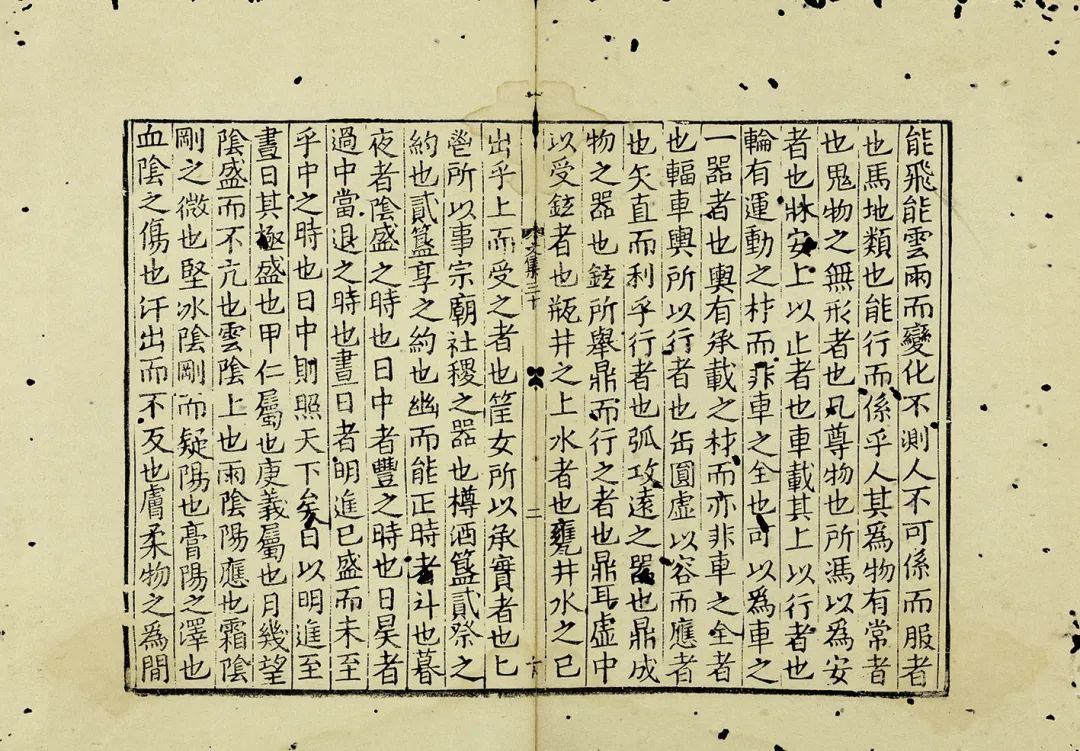 能飛能雲雨而變化不測人不可係而服者
也馬地類也能行而係乎人其爲物有常者
也鬼物之無形者也凡尊物也所馮以爲安
者也牀安上以止者也車載其上以行者也
輪有運動之材而非車之全也可以爲車之
一器者也輿有承載之材而亦非車之全者
也輻車輿所以行者也缶圓虛以容而應者
也矢直而利乎行者也弧攻遠之器也鼎成
物之器也鉉所舉鼎而行之者也鼎耳虛中
以受鉉者也瓶井之上水者也甕井水之已
文集三十
二
出乎上而受之者也筐女所以承實者也匕
鬯所以事宗廟社稷之器也樽酒簋貳祭之
約也貳簋享之約也幽而能正時者斗也暮
夜者陰盛之時也日中者豐之時也日昃者
過中當退之時也晝日者明進已盛而未至
乎中之時也日中則照天下矣曰以明進至
晝日其極盛也甲仁屬也庚義屬也月幾望
陰盛而不亢也雲陰上也雨陰陽應也霜陰
剛之微也堅冰陰剛而疑陽也膏陽之澤也
血陰之傷也汗出而不反也膚柔物之爲間